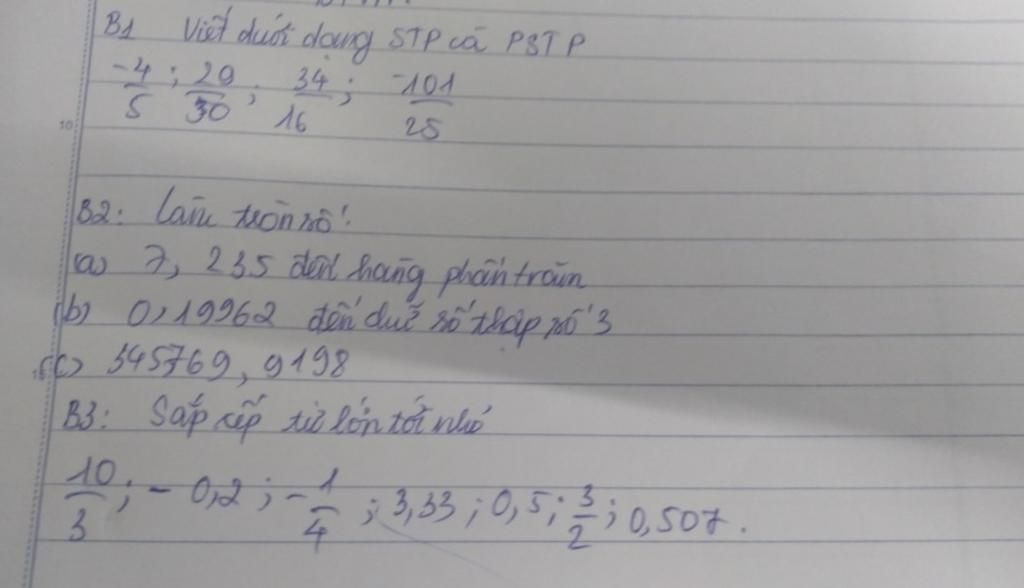 B1 Viết dưới dạng STP và PSTP
-4/5 ; 29/30 ; 34/16 ; -101/25
10
B2: Làm tròn số:
(a) 7, 235 đến hàng phần trăm
(b) 0,19962 đến chữ số thập số 3
(c) 345769, 9198
B3: Sắp xếp từ lớn tới nhỏ
10/3 ; - 0,2 ; - 1/4 ; 3,33 ; 0,5 ; 3/2 ; 0,507.